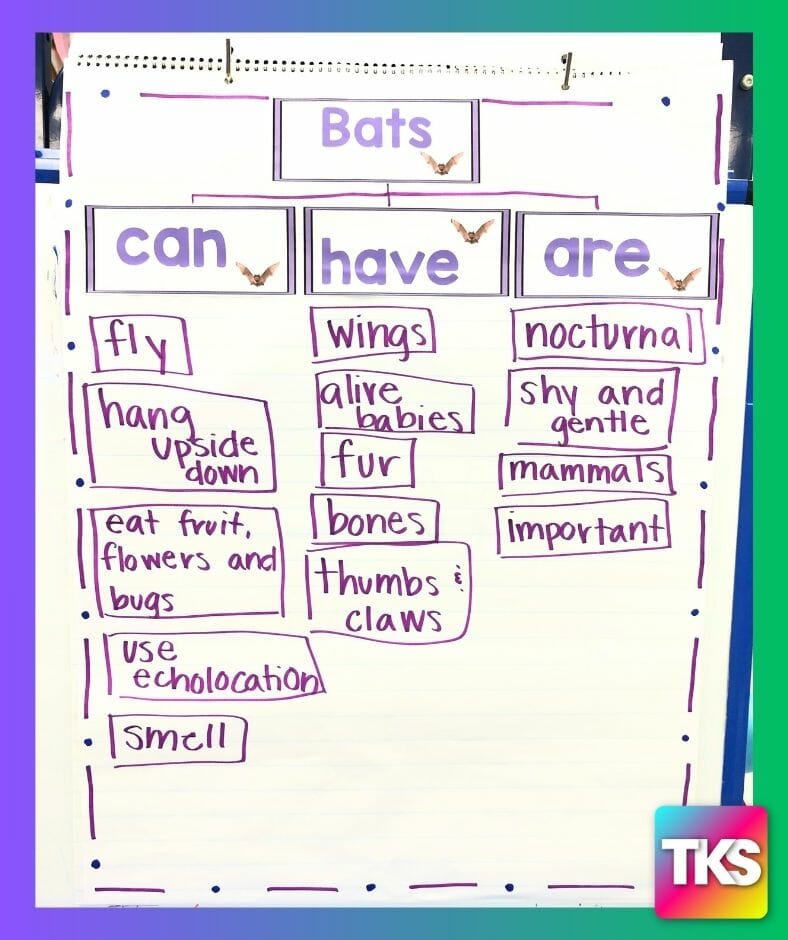 Bats
can
have
are
fly
hang
upside
down
eat fruit,
flowers and
bugs
use
echolocation
smell
wings
alive
babies
fur
bones
thumbs &
claws
nocturnal
shy and
gentle
mammals
important
TKS